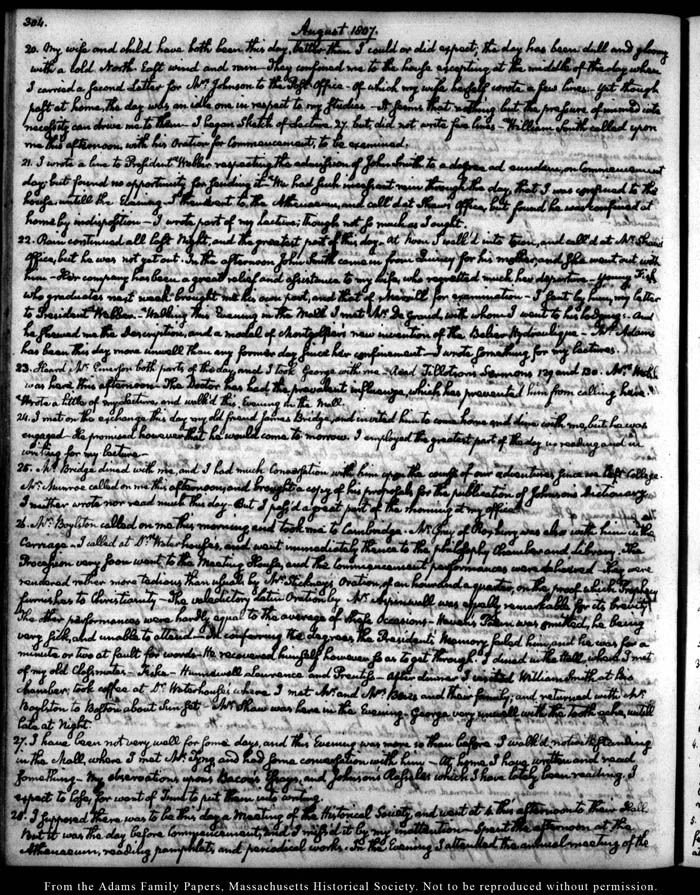 304.
August 1807.
20. My wife and child have both been this day, better than I could or did expect; the day has been dull and gloomy
with a cold North-East wind and rain—They confined me to the house excepting at the middle of the day when
I carried a second letter for Mrs. Johnson to the Post-Office—of which my wife herself wrote a few lines—Yet though
past at home, the day was an idle one in respect to my Studies—It seems that nothing but the pressure of immediate
necessity can drive me to them—I began Sketch of Lecture 27. but did not write five lines—William Smith called upon
me this afternoon, with his Oration for Commencement, to be examined.
21. I wrote a line to President Webber respecting the admission of John Smith to a degree ad eundem, on Commencement
day; but found no opportunity for sending it—We had such incessant rain through the day, that I was confined to the
house, untill the Evening—I then went to the Athenaeum, and call'd at Shaw's Office, but found he was confined at
home by indisposition—I wrote part of my lecture; though not so much as I ought.
22. Rain continued all last Night, and the greatest part of this day. At Noon I walk'd into town, and call'd at Mr. Shaw's
Office, but he was not yet out. In the afternoon John Smith came in from Quincy for his mother, and she went out with
him—Her company has been a great relief and assistance to my wife, who regretted much her departure—Young Fisk
who graduates next week brought me his own part, and that of for examination—I sent by him, my letter
to President Webber—Walking this Evening in the Mall I met Mr. De Grand, with whom I went to his lodgings—And
he shewed me the description, and a model of Montgolfier's new invention of the Belier Hydraulique—Mrs. Adams
has been this day more unwell than any former day since her confinement—I wrote something for my lectures.
23. Heard Mr. Emerson both parts of the day, and I took George with me—Read Tillotsons Sermons 129 and 130. Mrs.
was here this afternoon—The Doctor has had the prevalent influenza, which has prevented him from calling here.
Wrote a little of my lecture, and walk'd this Evening in the Mall.
24. I met on the exchange this day my old friend James Bridge, and invited him to come home and dine with me, but he was
engaged—He promised however that he would come to-morrow. I employed the greatest part of the day in reading and in
writing for my lecture—
25. Mr. Bridge dined with me, and I had much Conversation with him upon the course of our adventures since we left College.
Mr. Munroe called on me this afternoon, and brought a copy of his proposals for the publication of Johnson's Dictionary.
I neither wrote nor read much this day—But I pass'd a great part of the morning at my office.
26. Mr. Boylston called on me this morning and took me to Cambridge—Mr. Grey of Roxbury was also with him in the
Carriage—I called at Dr. Waterhouse's, and went immediately thence to the philosophy Chamber and Library. The
Procession very soon went to the Meeting House, and the Commencement performances were They were
rendered rather more tedious than usual, by Mr. Stickney's Oration, of an hour and a quarter, on the proof which Prophecy
furnishes to Christianity—The valedictory Latin Oration by Mr. was equally remarkable for its brevity
The other performances were hardly equal to the average of these Occasions— Poem was omitted, he being
very sick, and unable to attend—In conferring the degrees the President's Memory failed him, and he was for a
minute or two at fault for words—He recovered himself however so as to get through. I dined in the Hall, where I met
of my old Classmates—Fiske—Hunnewell Lawrence and Prentiss—After dinner I visited William Smith at his
chamber; took coffee at Dr. Waterhouse's where I met Mr. and Mrs. and their family; and returned with Mr.
Boylston to Boston about Sun-set—Mr. Shaw was here in the Evening. George very unwell with the tooth-ache, untill
late at Night.
27. I have been not very well for some days, and this Evening was more so than before. I walk'd notwithstanding
in the Mall, where I met Mr. Tyng and had some conversation with him—At home I have written and read
something—My observations upon Bacon's Essays, and Johnson's Rasselas which I have lately been reading. I
expect to lose, for want of Time to put them into writing.
28. I supposed there was to be this day a Meeting of the Historical Society, and went at 4 this afternoon to their Hall
But it was the day before Commencement, and I miss'd it by my inattention—Spent the afternoon at the
Athenaeum, reading pamphlets, and periodical works. In the Evening I attended the annual meeting of the
From the Adams Family Papers, Massachusetts Historical Society. Not to be reproduced without permission.